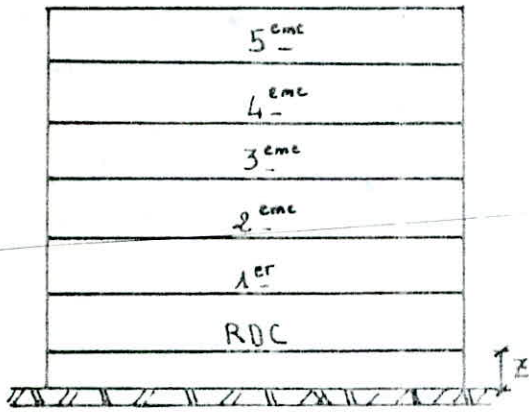 5 eme
4 eme
3 eme
2 eme
1 er
RDC
z